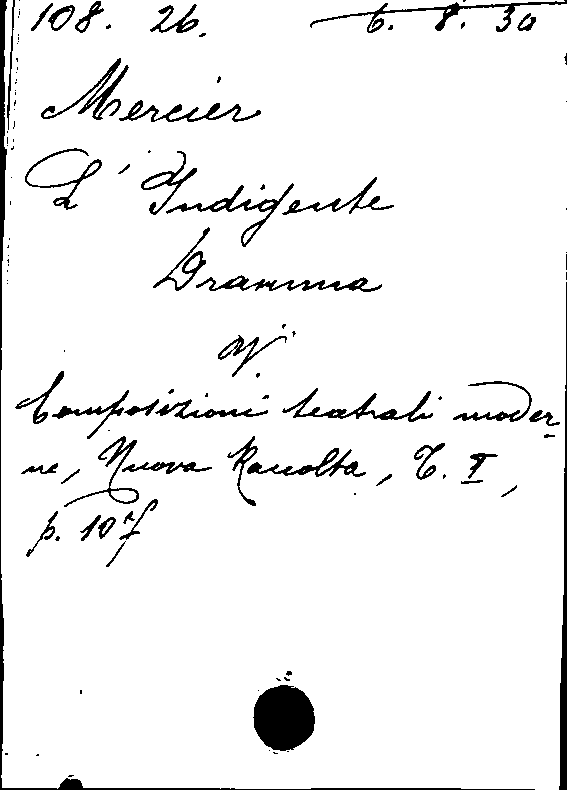 108. 26. 6. 8. 30
Mercier
L'Indigente
Dramma
V.
Composizioni teatrali moder-
ne, Nuova Raccolta, T. I,
p. 107